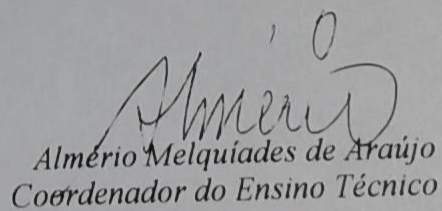 Almério
Almério Melquíades de Araújo
Coordenador do Ensino Técnico